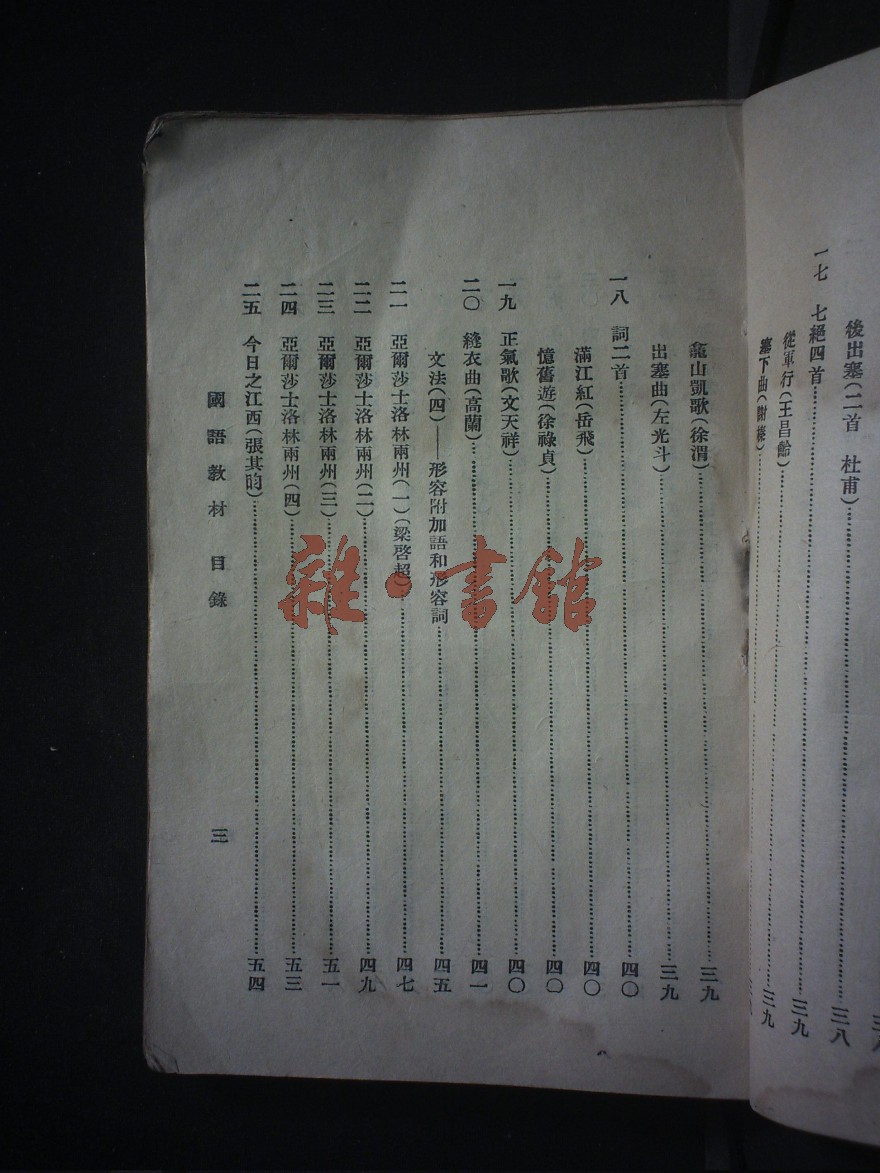 後出塞(二首 杜甫)
一七 七絕四首 三八
從軍行(王昌齡) 三九
塞下曲(謝榛) 三九
龕山凱歌(徐渭) 三九
出塞曲(左光斗) 三九
一八 詞二首 四〇
滿江紅(岳飛) 四〇
憶舊遊(徐祿貞) 四〇
一九 正氣歌(文天祥) 四〇
二〇 縫衣曲(高蘭) 四一
文法(四)——形容附加語和形容詞 四五
二一 亞爾莎士洛林兩州(一)(梁啓超) 四七
二二 亞爾莎士洛林兩州(二) 四九
二三 亞爾莎士洛林兩州(三) 五一
二四 亞爾莎士洛林兩州(四) 五三
二五 今日之江西(張其昀) 五四
國語教材 目錄 三
雜·書館